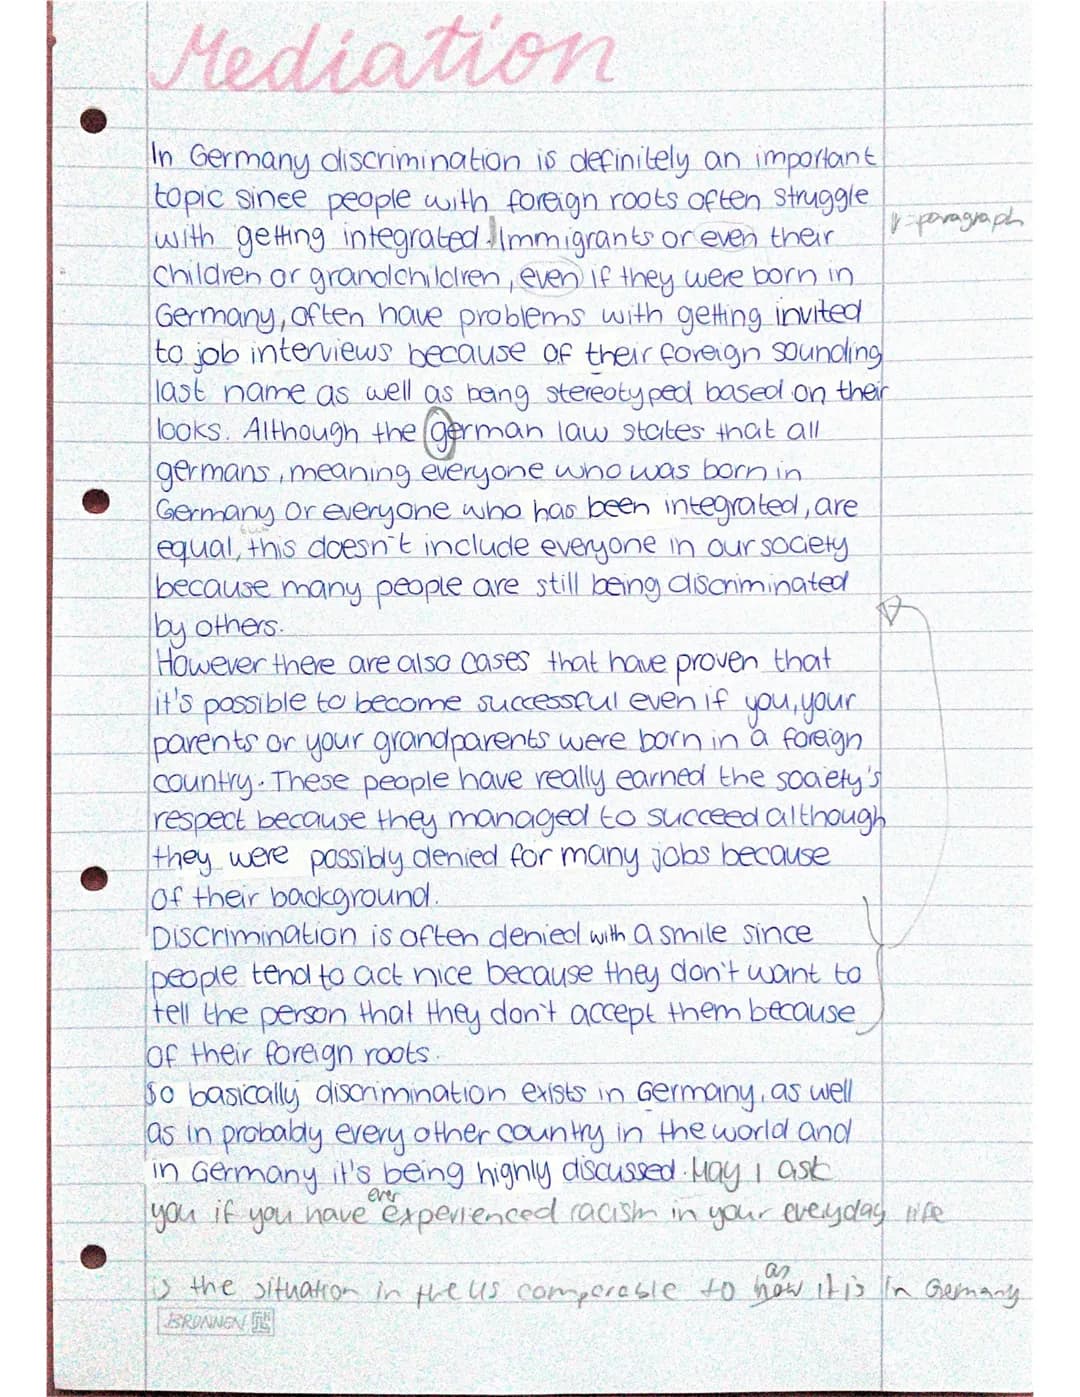 Mediation
In Germany discrimination is definitely an important
topic since people with foreign roots often struggle
with getting integrated. Immigrants or even their
paragraph
children or grandchildren, even if they were born in
Germany, often have problems with getting invited
to job interviews because of their foreign sounding
last name as well as being stereotyped based on their
looks. Although the german law states that all
germans, meaning everyone who was born in
Germany or everyone who has been integrated, are
equal, this doesn't include everyone in our society
because many people are still being discriminated
by others.
However there are also cases that have proven that
it's possible to become successful even if you, your
parents or your grandparents were born in a foreign
country. These people have really earned the society's
respect because they managed to succeed although
they were possibly denied for many jobs because
of their background.
Discrimination is often denied with a smile since
people tend to act nice because they don't want to
tell the person that they don't accept them because
of their foreign roots.
So basically discrimination exists in Germany, as well
as in probably every other country in the world and
in Germany it's being highly discussed. May I ask
you if you have ever experienced racism in your everyday life
is the situation in the US comparable to how as it is in Germany
BRUNNEN